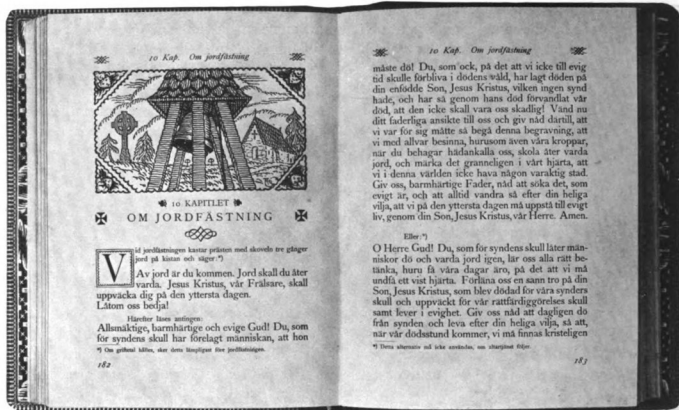 10 Kap. Om jordfästning
10 KAPITLET
OM JORDFÄSTNING
Vid jordfästningen kastar prästen med skoveln tre gånger
jord på kistan och säger:*)
Av jord är du kommen. Jord skall du åter
varda. Jesus Kristus, vår Frälsare, skall
uppväcka dig på den yttersta dagen.
Låtom oss bedja!
Härefter läses antingen:
Allsmäktige, barmhärtige och evige Gud! Du, som
för syndens skull har förelagt människan, att hon
*) Om griftetal hålles, sker detta lämpligast före jordfästningen.
182
10 Kap. Om jordfästning
måste dö! Du, som ock, på det att vi icke till evig
tid skulle förbliva i dödens våld, har lagt döden på
din enfödde Son, Jesus Kristus, vilken ingen synd
hade, och har så genom hans död förvandlat vår
död, att den icke skall vara oss skadlig! Vänd nu
ditt faderliga ansikte till oss och giv nåd därtill, att
vi var för sig måtte så begå denna begravning, att
vi med allvar besinna, hurusom även våra kroppar,
när du behagar hädankalla oss, skola åter varda
jord, och märka det granneligen i vårt hjärta, att
vi i denna världen icke hava någon varaktig stad.
Giv oss, barmhärtige Fader, nåd att söka det, som
evigt är, och att alltid vandra så efter din heliga
vilja, att vi på den yttersta dagen må uppstå till evigt
liv, genom din Son, Jesus Kristus, vår Herre. Amen.
Eller:*)
O Herre Gud! Du, som för syndens skull låter män-
niskor dö och varda jord igen, lär oss alla rätt be-
tänka, huru få våra dagar äro, på det att vi må
undfå ett vist hjärta. Förläna oss en sann tro på din
Son, Jesus Kristus, som blev dödad för våra synders
skull och uppväckt för vår rättfärdiggörelses skull
samt lever i evighet. Giv oss nåd att dagligen dö
från synden och leva efter din heliga vilja, så att,
när vår dödsstund kommer, vi må finnas kristeligen
*) Detta alternativ må icke användas, om altartjänst följer.
183